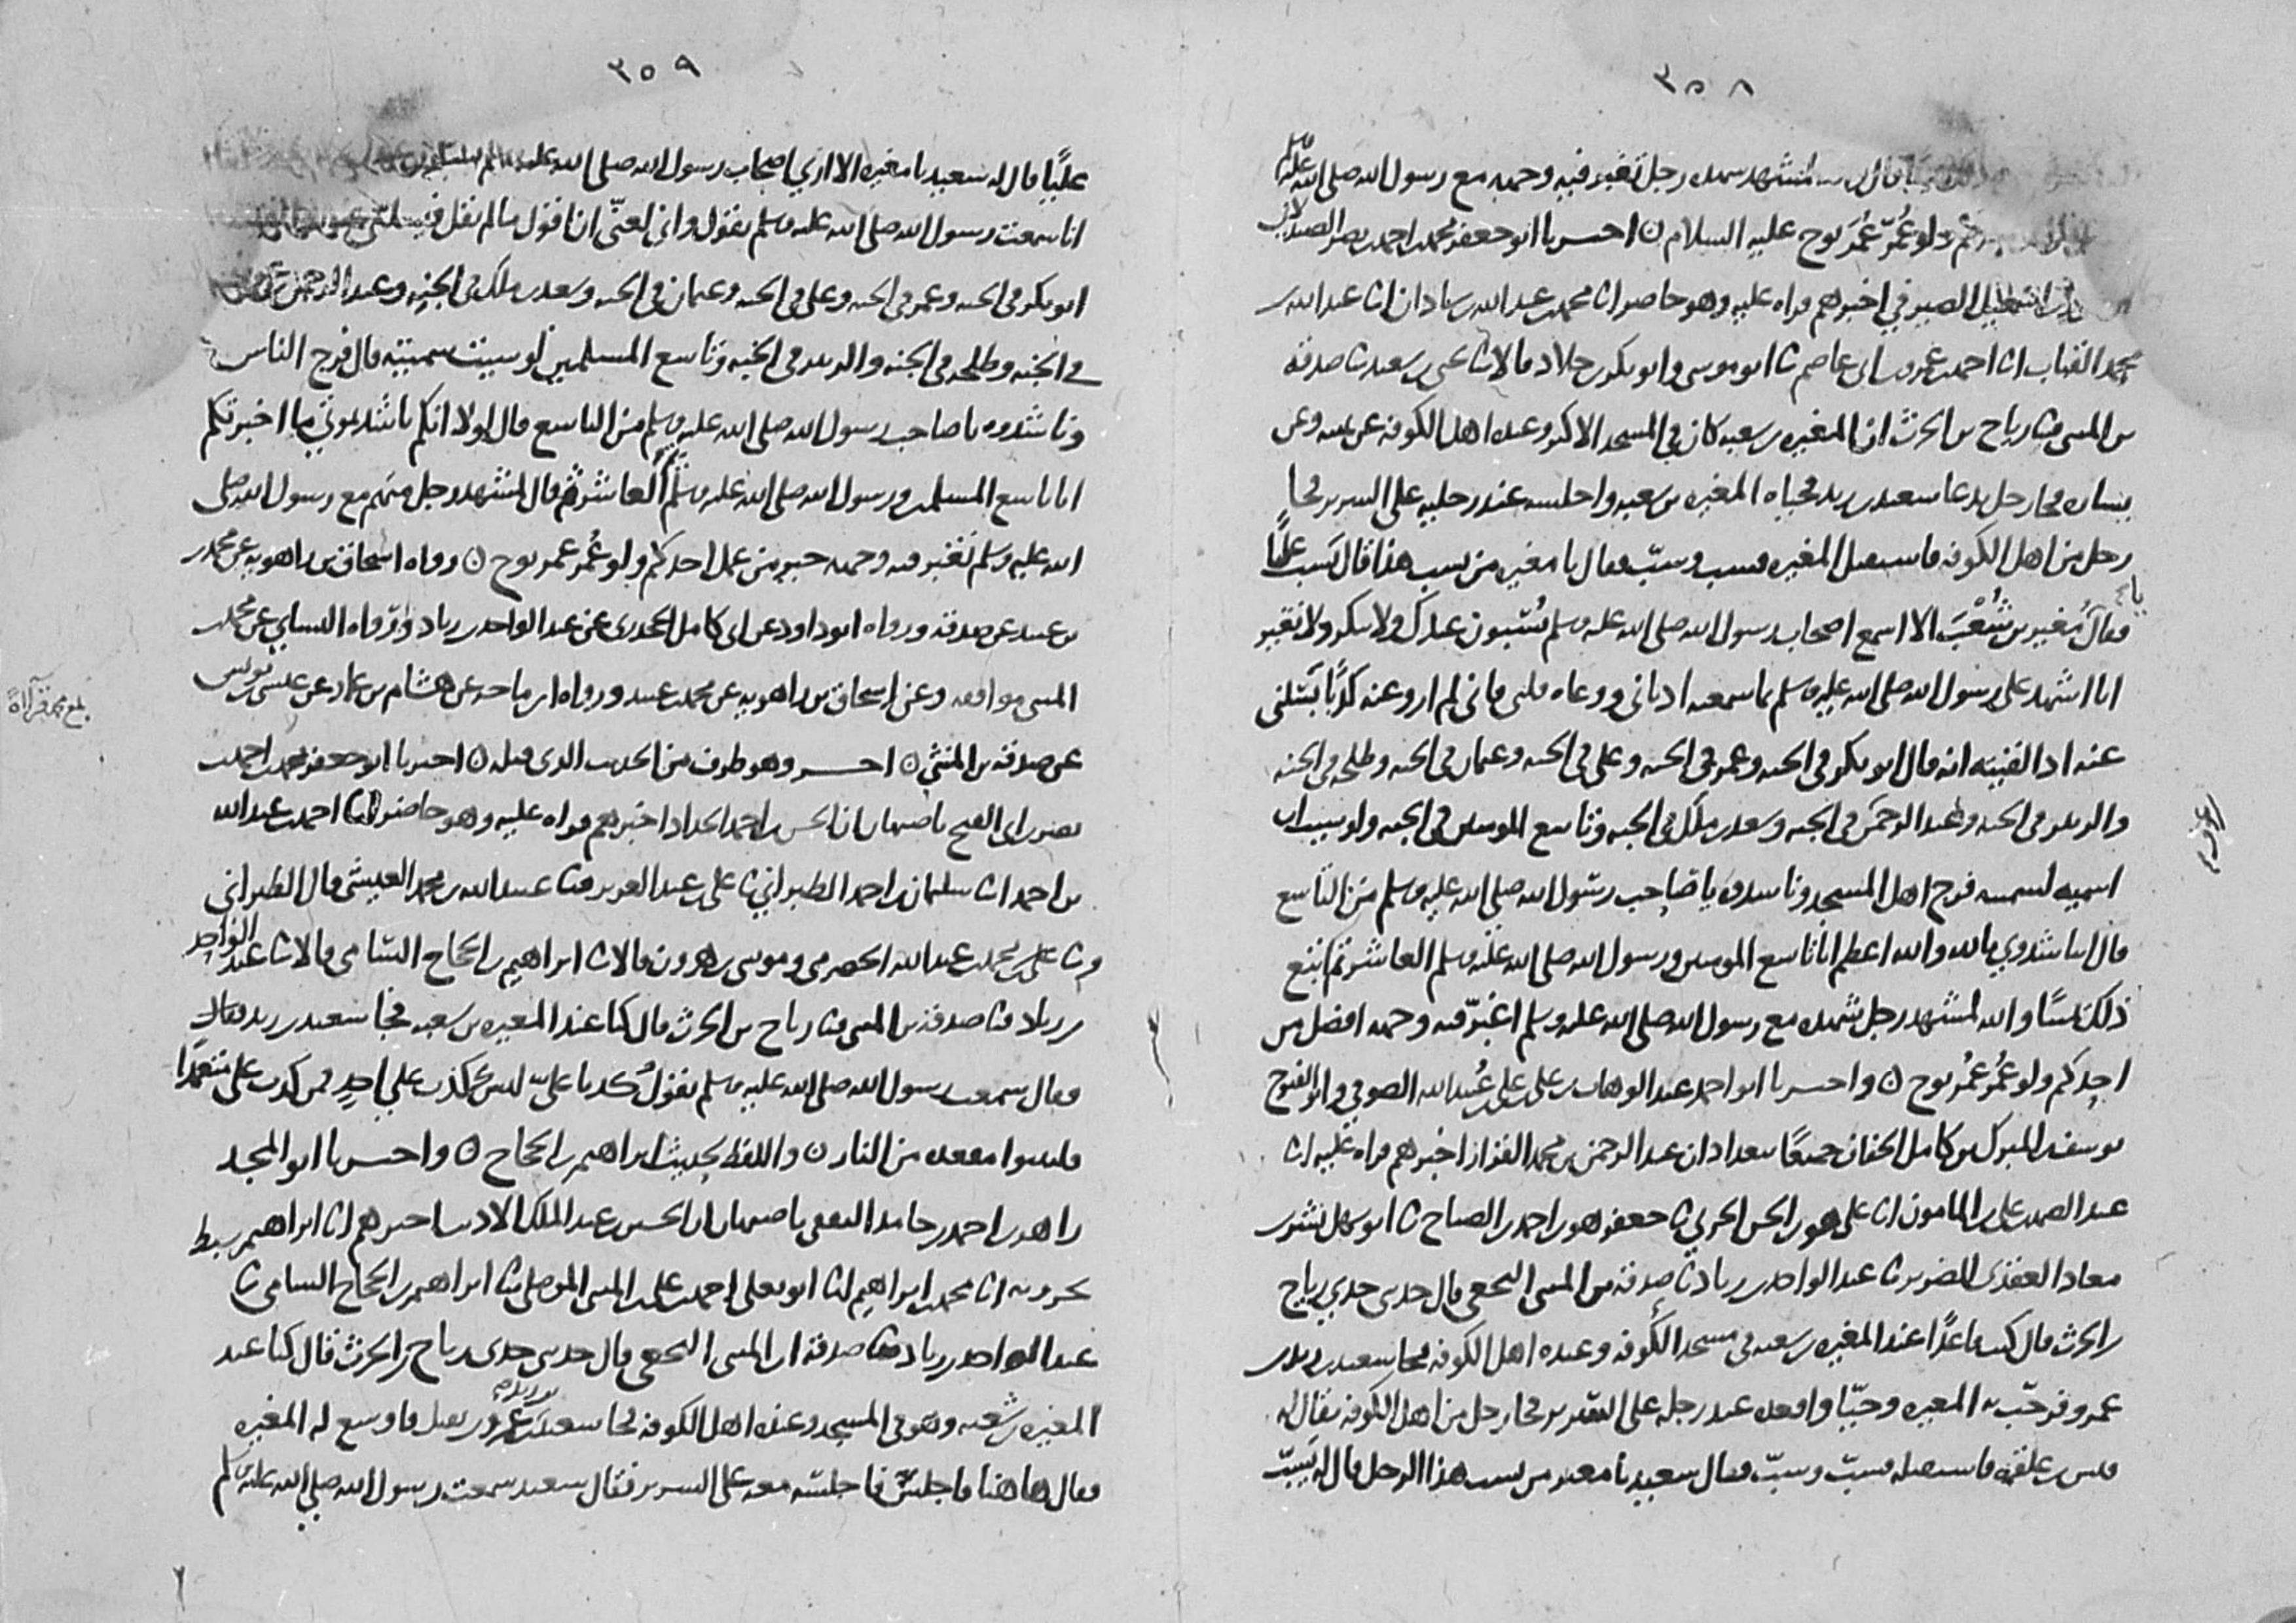 ٣٥٨
قال لمشهد شهده رجل تغبر فيه وجهه مع رسول الله صلى الله عليه وسلم
ولو عُمِّر عُمُرَ نوح عليه السلام ن احسرنا ابو جعفر محمد بن احمد بن نصر الصيدلاني
بن اسمعيل الصيرفي اخبرهم قراه عليه وهو حاضر انا محمد بن عبد الله بن شاذان انا عبد الله بن
محمد القباب انا احمد بن عمرو بن ابي عاصم ثنا ابو موسى وابو بكر بن خلاد قالا ثنا يحيى بن سعيد ثنا صدقة
بن المثنى ثنا رياح بن الحرث ان المغيره بن شعبه كان في المسجد الاكبر وعنده اهل الكوفه عن يمينه وعن
يساره فجا رجل يدعا سعيد بن زيد فحياه المغيره بن شعبه واجلسه عند رجليه على السرير فجا
رجل من اهل الكوفه فاستقبل المغيره فسب وسبّ فقال يا مغيره من يسب هذا قال يَسب عليًّا
فقالَ يا مُغير بن شُعْبَ الا اسمع اصحاب رسول الله صلى الله عليه وسلم يُسَبون عندك ولا تنكر ولا تغير
انا اشهد على رسول الله صلى الله عليه وسلم بما سمعته اذناي ووعاه قلبي فاني لم ارو عنه كذبًا يَسَلني
عنه اذا لقيته انه قال ابو بكر في الجنه وعمر في الجنه وعلي في الجنه وعثمان في الجنه وطلحه في الجنه
والزبير في الجنه وعبد الرحمن في الجنه وسعد بن ملك في الجنه وتاسع المومنين في الجنه ولو شيت ان
اسميه لسميته فرج اهل المسجد وناشدوه يا صَاحِب رسول الله صلى الله عليه وسلم مَن التاسع
قال ناشدوني بالله والله اعظم انا تاسع المومنين ورسول الله صلى الله عليه وسلم العاشر ثم اتبع
ذلك يمينًا والله لمشهد رجل شهده مع رسول الله صلى الله عليه وسلم اغبرّ فيه وجهه افضل من
احدكم ولو عُمِّرَ عُمُر نوح ن واحسرنا ابو احمد عبد الوهاب بن علي بن علي بن عُبيد الله الصوفي وابو الفتوح
يوسف بن المبرك بن كامل الخفاف جميعًا ببغداد ان عبد الرحمن بن محمد القزاز اخبرهم قراه عليه انا
عبد الصمد بن علي بن المامون انا علي بن عمر بن الحسن الحربي ثنا جعفر بن احمد بن الصباح ثنا ابو سهل بشر بن
معاذ العقدي الضرير ثنا عبد الواحد بن زياد ثنا صدقة بن المثنى النخعي قال حدثني جدي رياح
بن الحرث قال كنت قاعدًا عند المغيره بن شعبه في مسجد الكُوفه وعنده اهل الكوفه فجا سعيد بن زيد بن
عمرو فرحّب به المغيره وحيّا واقعده عند رجله على السَّرير فجا رجل من اهل الكوفه يقال له
قيس بن علقمه فاستقبله فسبّ وسبّ فقال سعيد يا مغير من يسب هذا الرجل قال له يَسبّ
٣٥٩
عليًّا قال له سعيد يا مغيره الا اري اصحاب رسول الله صلى الله عليه وسلم يسبون
انا سمعت رسول الله صلى الله عليه وسلم يقول واني لغنيّ ان اقول ما لم يقل فيسلني
ابو بكر في الجنه وعمر في الجنه وعلي في الجنه وعثمان في الجنه وسعد بن ملك في الجنه وعبد الرحمن بن عوف
في الجنه وطلحه في الجنه والزبير في الجنه وتاسع المسلمين لو شيت سميته قال فرج الناس
وناشدوه يا صاحب رسول الله صلى الله عليه وسلم من التاسع قال لولا انكم ناشدتموني ما اخبرتكم
انا تاسع المسلمين ورسول الله صلى الله عليه وسلم العاشر ثم قال لمشهد رجل منهم مع رسول الله صلى
الله عليه وسلم تغبر فيه وجهه خير من عمل احدكم ولو عُمر عمر نوح ن رواه اسحاق بن راهويه عن محمد بن
عبيد عن صدقة ورواه ابو داود عن ابي كامل الجحدري عن عبد الواحد بن زياد ورَواه النساي عن محمد بن
المثنى موافقه وعن اسحاق بن راهويه عن محمد بن عبيد ورواه ابن ماجه عن هشام بن عمار عن عيسى بن يونس
عن صدقة بن المثنى ن احسر وهو طرف من الحديث الذي قبله ن احسرنا ابو جعفر محمد بن احمد بن
نصر بن ابي الفتح باصبهان ان الحسن بن احمد الحداد اخبرهم قراه عليه وهو حاضر انا احمد بن عبد الله
بن احمد انا سليمان بن احمد الطبراني ثنا علي بن عبد العزيز ثنا عبيد الله بن محمد العيشي قال الطبراني
وثنا محمد بن عبد الله الحضرمي وموسى بن هرون قالا ثنا ابراهيم بن الحجاج السامي قالا ثنا عبد الواحد
بن زياد ثنا صدقة بن المثنى ثنا رياح بن الحرث قال كنا عند المغيره بن شعبه فجا سعيد بن زيد فقال
فقال سمعت رسول الله صلى الله عليه وسلم يقولُ كذبا عليّ ليس ككذب علي احدٍ من كذب علي متعمدًا
فليتبوا مقعده من النار ن واللفظ لحديث ابراهيم بن الحجاج ن واحسرنا ابو المجد
زاهر بن احمد بن حامد الثقفي باصبهان ان الحسين بن عبد الملك الاديب اخبرهم انا ابراهيم سبط
بحرويه انا محمد بن ابراهيم انا ابو يعلى احمد بن علي بن المثنى الموصلي ثنا ابراهيم بن الحجاج السامي ثنا
عبد الواحد بن زياد ثنا صدقة بن المثنى النخعي قال حدثني جدي رياح بن الحرث قال كنا عند
المغيره بن شعبه وهو في المسجد وعنده اهل الكوفه فجا سعيد بن زيد بن عمرو بن نفيل فاوسع له المغيره
فقال ها هنا فاجلسْ فاجلسه معه على السرير فقال سعيد سمعت رسول الله صلى الله عليه وسلم